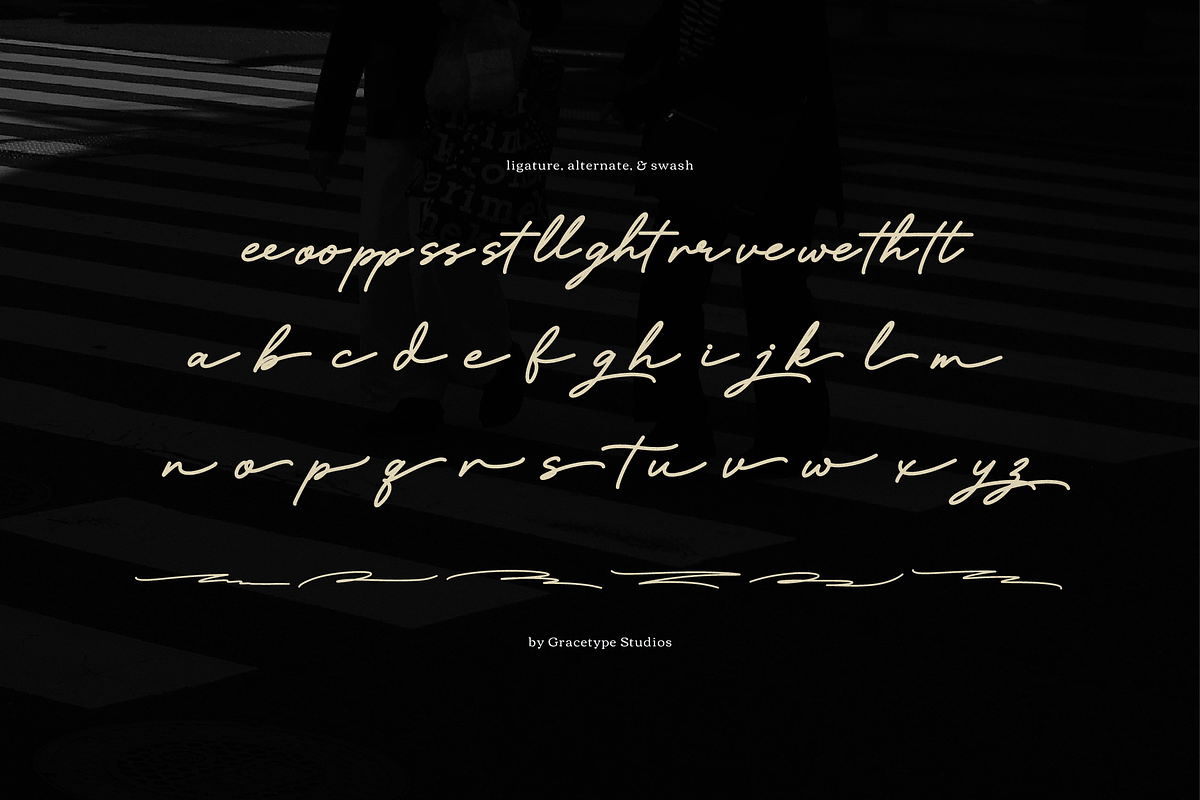 ligature, alternate, & swash
ee oo pp ss st ll ght rr ve we th tt
a b c d e f g h i j k l m
n o p q r s t u v w x y z
by Gracetype Studios